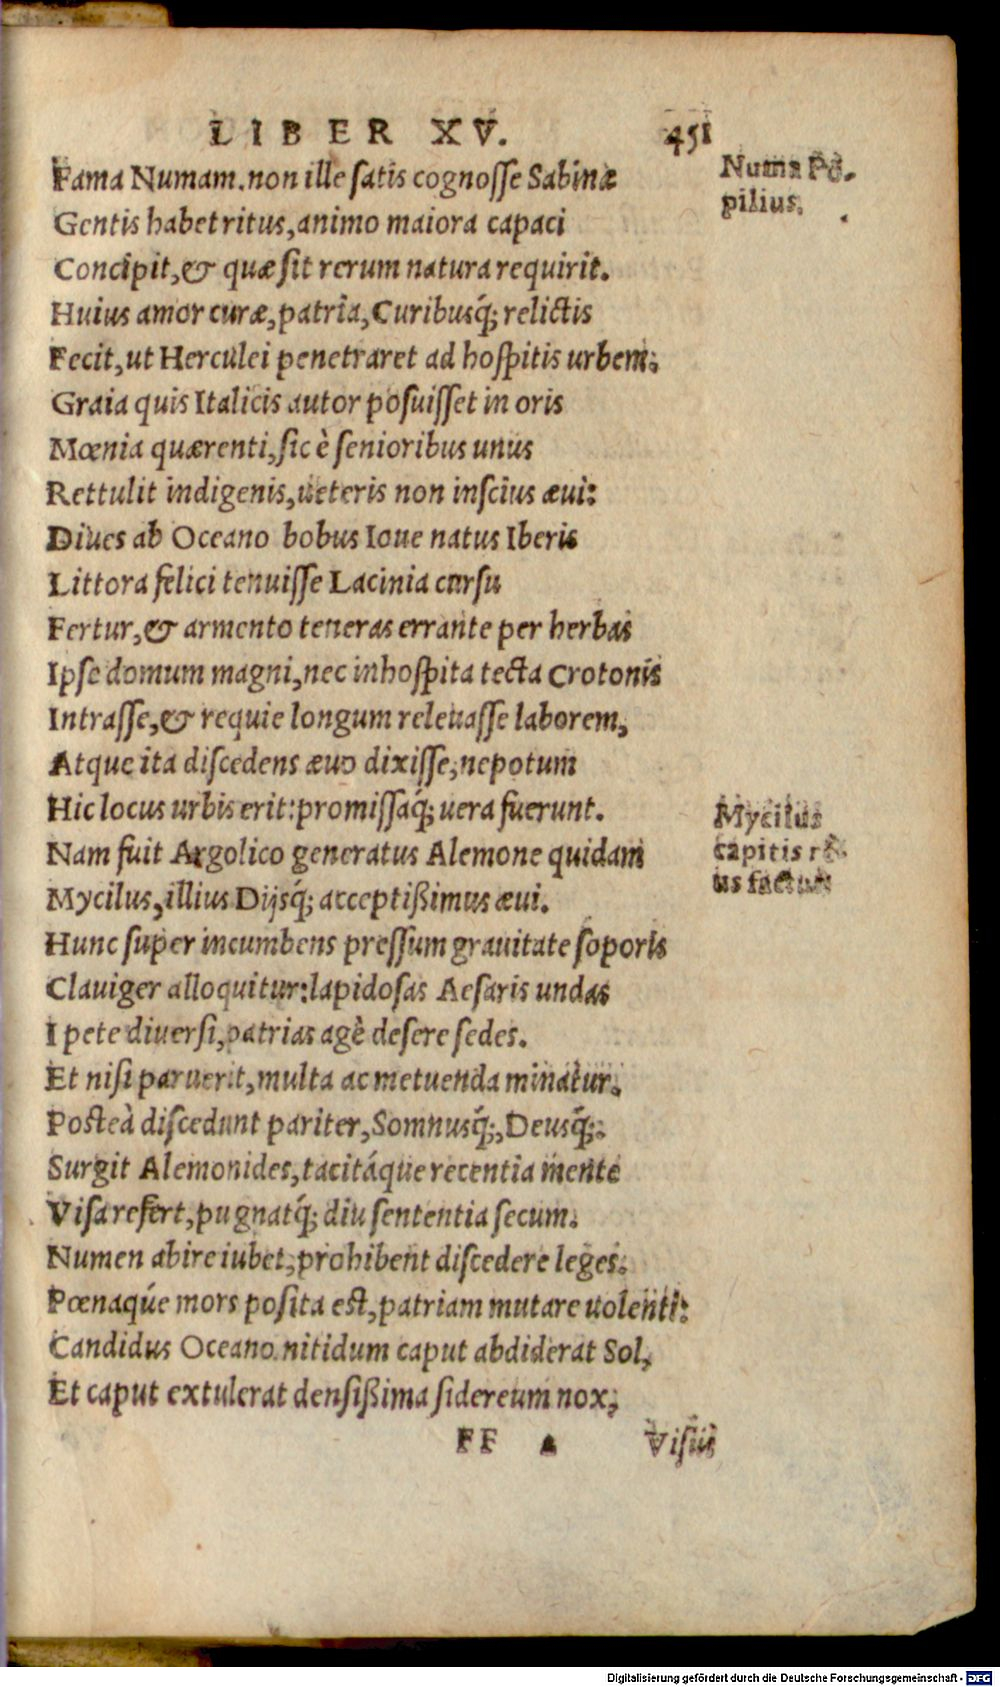 LIBER XV. 451
Fama Numam. non ille satis cognosse Sabinæ
Gentis habet ritus, animo maiora capaci
Concipit, & quæ sit rerum natura requirit.
Huius amor curæ, patria, Curibusq́; relictis
Fecit, ut Herculei penetraret ad hospitis urbem.
Graia quis Italicis autor posuisset in oris
Mœnia quærenti, sic è senioribus unus
Rettulit indigenis, ueteris non inscius æui:
Diues ab Oceano bobus Ioue natus Iberis
Littora felici tenuisse Lacinia cursu
Fertur, & armento teneras errante per herbas
Ipse domum magni, nec inhospita tecta Crotonis
Intrasse, & requie longum releuasse laborem,
Atque ita discedens æuo dixisse, nepotum
Hic locus urbis erit: promissaq́; uera fuerunt.
Nam fuit Argolico generatus Alemone quidam
Mycilus, illius Dijsq́; acceptißimus æui.
Hunc super incumbens pressum grauitate soporis
Clauiger alloquitur: lapidosas Aesaris undas
I pete diuersi, patrias agè desere sedes.
Et nisi paruerit, multa ac metuenda minatur.
Posteà discedunt pariter, Somnusq́;, Deusq́;.
Surgit Alemonides, tacitáque recentia mente
Visa refert, pugnatq́; diu sententia secum.
Numen abire iubet, prohibent discedere leges.
Pœnaqúe mors posita est, patriam mutare uolenti:
Candidus Oceano nitidum caput abdiderat Sol,
Et caput extulerat densißima sidereum nox,
FF Visus
Numa Põ-
pilius.
Mycilus
capitis re-
us factus
Digitalisierung gefördert durch die Deutsche Forschungsgemeinschaft - DFG